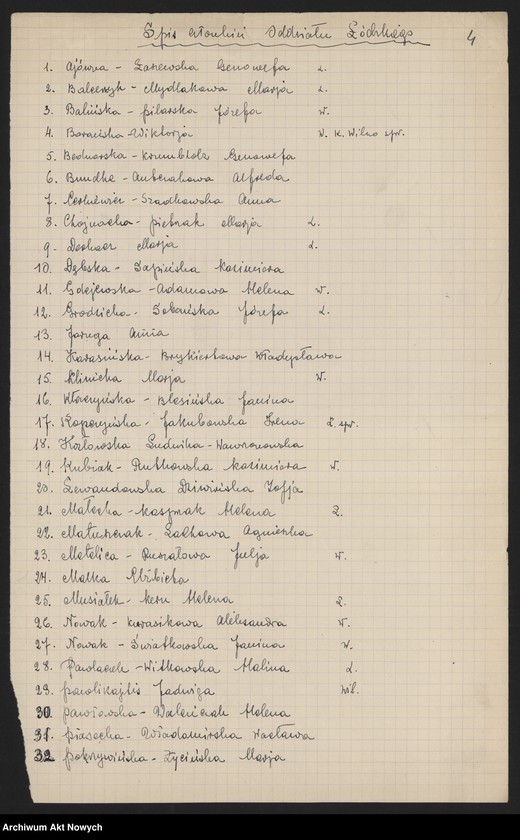 Spis członkiń Oddziału Łódzkiego
4
1. Ajówna - Zaniewska Genowefa Ł.
2. Balcerzyk - Mydlakowa Marja Ł.
3. Balińska - Pilarska Józefa W.
4. Boracińska Wiktorja W. K. Wilno spr.
5. Bednarska - Krumbholz Genowefa
6. Bundke - Antczakowa Alfreda
7. Szadkowska Anna
8. Chojnacka - Pietrzak Marja Ł.
9. Marja Ł.
10. Dębska - Sapińska Kazimiera
11. Gdejewska - Adamowa Helena W.
12. Grodzicka - Sobańska Józefa Ł.
13. Jaruga Anna
14. Karasińska - Brykiertowa Władysława
15. Klinicka Marja W.
16. Kłoczyńska - Błasińska Janina
17. Kopczyńska - Jakubowska Irena Ł. spr.
18. Kozłowska Ludwika - Wawrzonowska
19. Kubiak - Rutkowska Kazimiera W.
20. Lewandowska Zofja
21. Małecka - Kasprzak Helena Ł.
22. Matuszczak - Zatkowa Agnieszka
23. Metelica - Julja W.
24. Matka Elżbieta
25. Musiałek - Kern Helena Ł.
26. Nowak - Kurasikowa Aleksandra W.
27. Nowak - Światkowska Janina W.
28. Pawlaczek - Witkowska Halina Ł.
29. Pawlikajtis Jadwiga Wil.
30. Pawłowska - Walenczak Helena
31. Piasecka - Władamirska Wacława
32. Pokrzywińska - Życińska Marja
Archiwum Akt Nowych